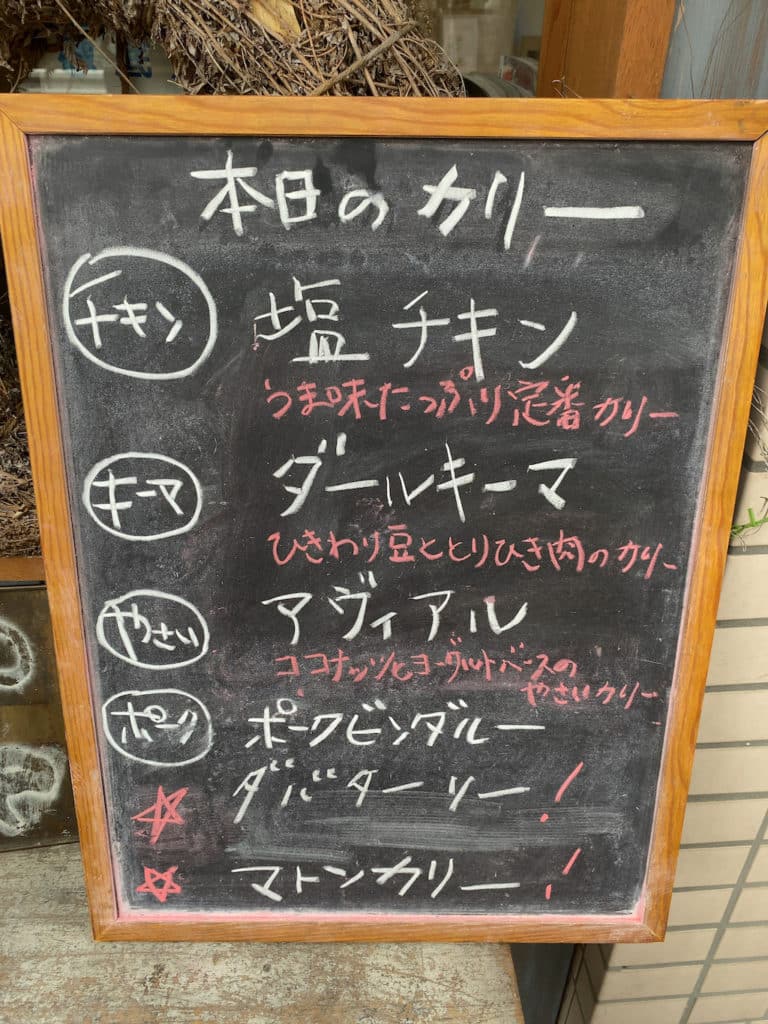 本日のカリー
チキン 塩チキン
うま味たっぷり定番カリー
キーマ ダールキーマ
ひきわり豆ととりひき肉のカリー
やさい アヴィアル
ココナッツとヨーグルトベースの
やさいカリー
ポーク ポークビンダルー
ダバターリー!
マトンカリー!